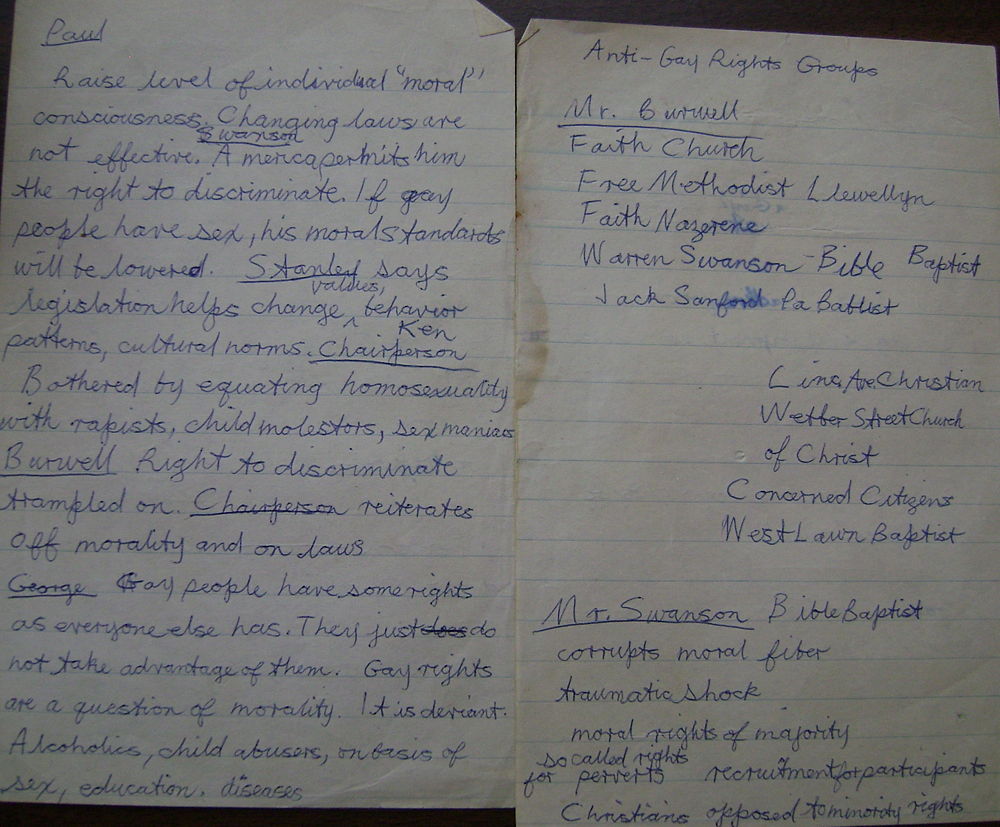 Paul
Raise level of individual "moral"
consciousness. Changing laws are
Swanson
not effective. America permits him
the right to discriminate. If gay
people have sex, his moral standards
will be lowered. Stanley says
values,
legislation helps change behavior
Ken
patterns, cultural norms. Chairperson
Bothered by equating homosexuality
with rapists, child molestors, sex maniacs
Burwell Right to discriminate
trampled on. Chairperson reiterates
off morality and on laws
George Gay people have some rights
as everyone else has. They just does do
not take advantage of them. Gay rights
are a question of morality. It is deviant.
Alcoholics, child abusers, on basis of
sex, education. diseases
Anti-Gay Rights Groups
Mr. Burwell
Faith Church
Free Methodist Llewellyn
Faith Nazerene
Warren Swanson - Bible Baptist
Jack Sanford Pa Babtist
Ave Christian
Street Church
of Christ
Concerned Citizens
West Lawn Baptist
Mr. Swanson Bible Baptist
corrupts moral fiber
traumatic shock
moral rights of majority
so called rights
for perverts recruitment for participants
Christians opposed to minority rights